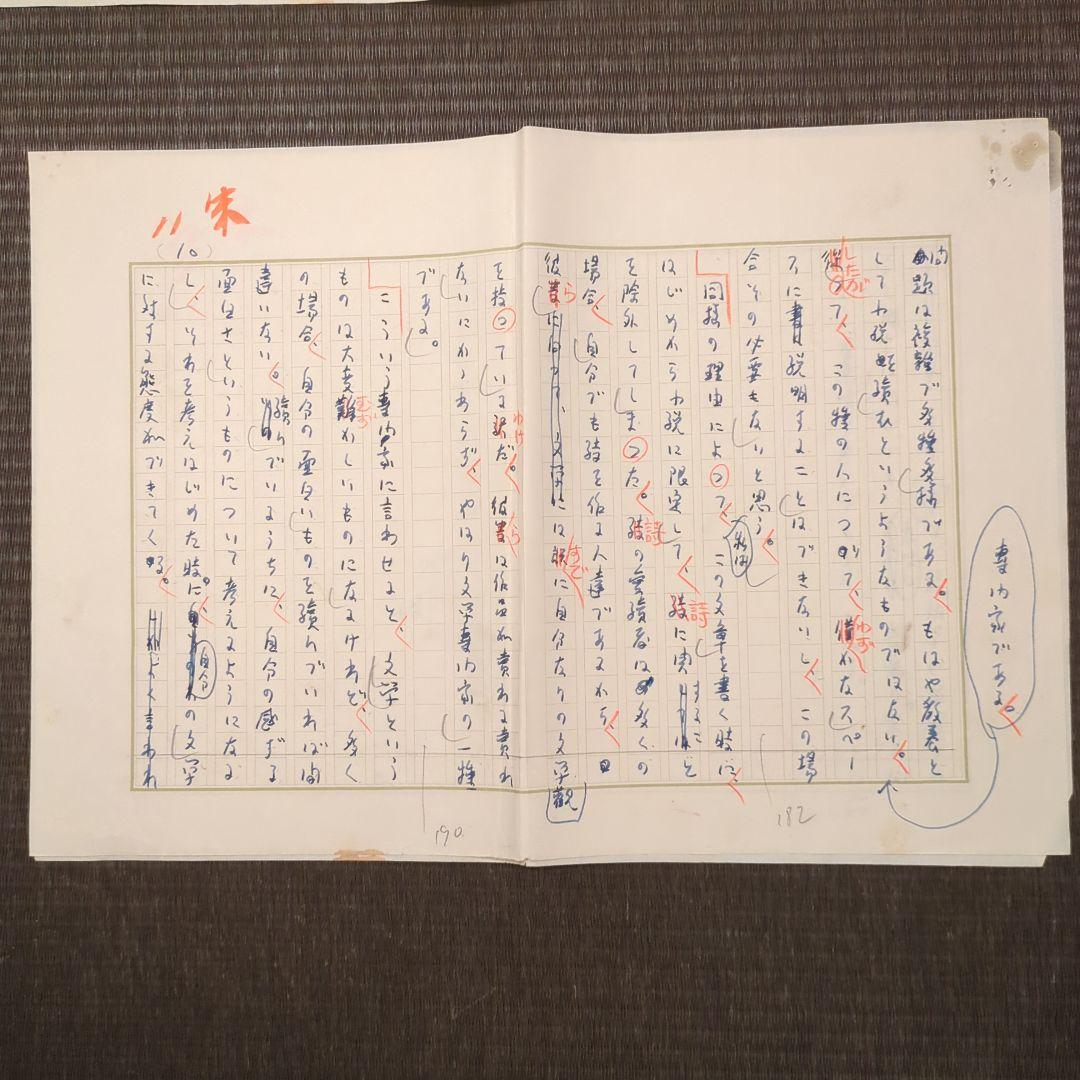 専門家である。
問題は複雑で多種多様である。もはや教養と
してわれ読むというようなものではない。
従って、この種の人について、僅かなスペー
したが
わず
スに説明することはできないし、この場
合その必要もないと思う。
同様の理由によって、この文章を書く時に、
はじめから
に限定して、詩に関することを
詩
を除外してしまった。詩の愛読者は多くの
詩
場合、自分でも詩を作る人達であるから、
彼らには既に自分なりの文学観
ら
すで
を持っている訳だ。彼らは作品が売れる売れ
わけ
ら
ないにかかわらず、やはり文学専門家の一種
である。
こういう専門家に言わせると、文学という
ものは大変難かしいものになるけれど、多く
むず
の場合、自分の面白いものを読んでいれば間
違いない。読んでいるうちに、自分の感ずる
面白さというものについて考えるようになる
し、それを考えはじめた時に、自分の文学
に対する態度ができてくる。
よく言われ
(10)
11
末
182
190